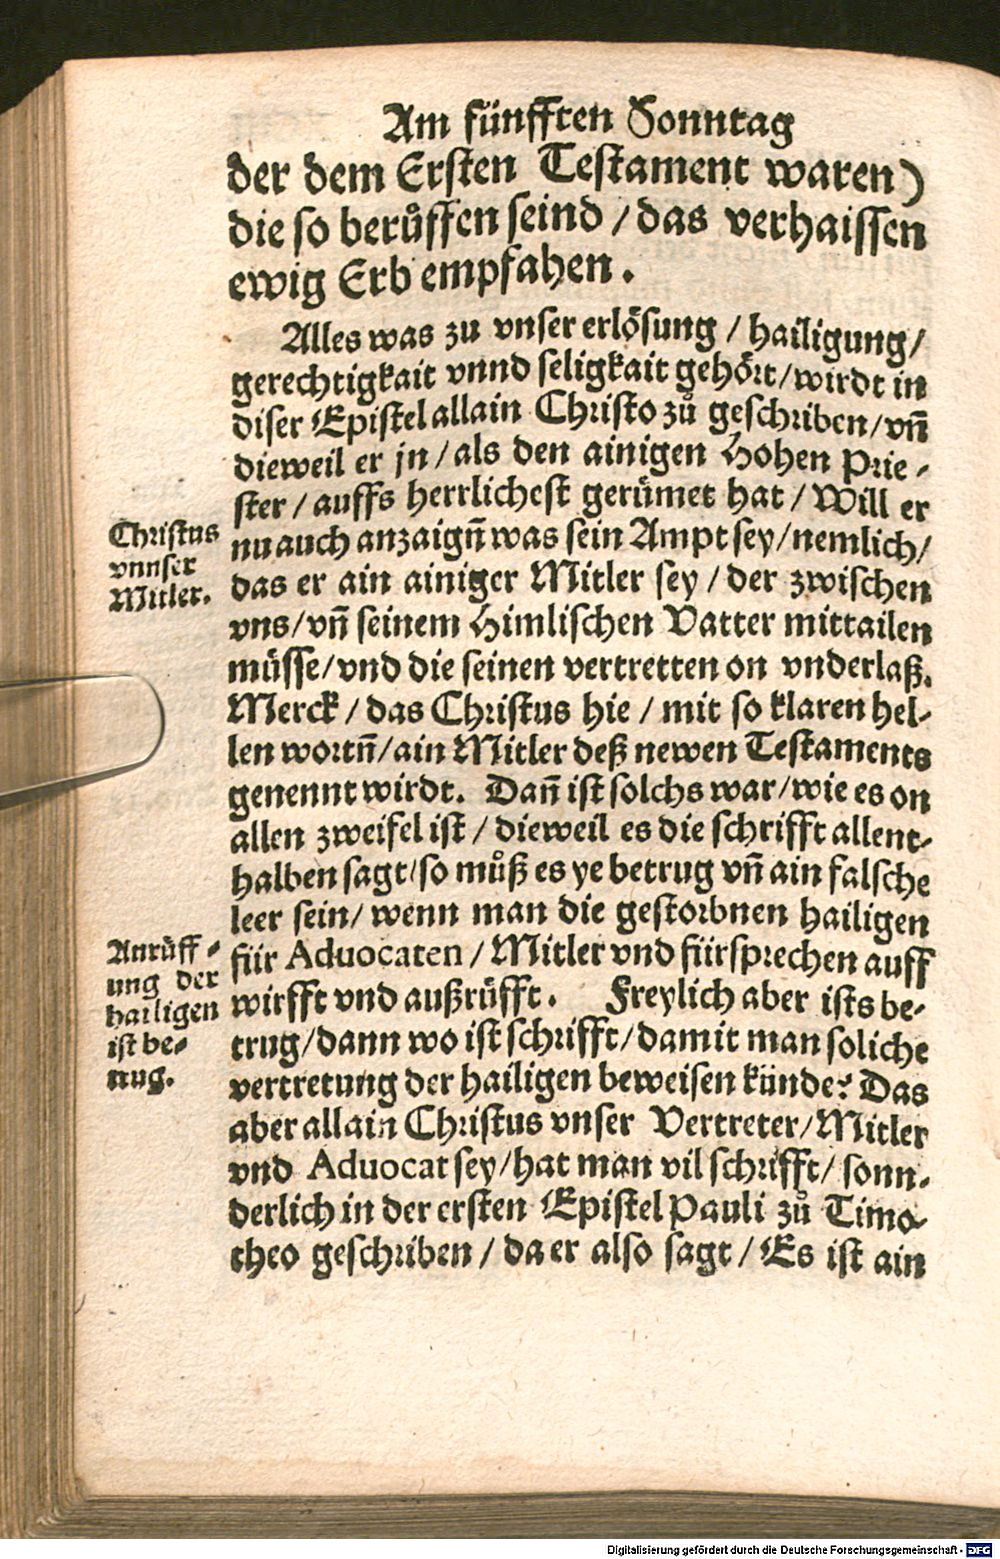 Am fünfften Sonntag
der dem Ersten Testament waren)
die so berůffen seind / das verhaissen
ewig Erb empfahen.
Alles was zu vnser erlösung / hailigung /
gerechtigkait vnnd seligkait gehört / wirdt in
diser Epistel allain Christo zů geschriben / vñ
dieweil er jn / als den ainigen Hohen Prie-
ster / auffs herrlichest gerümet hat / Will er
nu auch anzaigñ was sein Ampt sey / nemlich /
das er ain ainiger Mitler sey / der zwischen
vns / vñ seinem Himlischen Vatter mittailen
müsse / vnd die seinen vertretten on vnderlaß.
Merck / das Christus hie / mit so klaren hel-
len wortñ / ain Mitler deß newen Testaments
genennt wirdt. Dañ ist solchs war / wie es on
allen zweifel ist / dieweil es die schrifft allent-
halben sagt / so můß es ye betrug vñ ain falsche
leer sein / wenn man die gestorbnen hailigen
für Aduocaten / Mitler vnd fürsprechen auff
wirfft vnd außrüfft. Freylich aber ists be-
trug / dann wo ist schrifft / damit man soliche
vertretung der hailigen beweisen künde? Das
aber allain Christus vnser Vertreter / Mitler
vnd Aduocat sey / hat man vil schrifft / sonn-
derlich in der ersten Epistel Pauli zů Timo-
theo geschriben / da er also sagt / Es ist ain
Christus
vnnser
Mitler.
Anrüff-
ung der
hailigen
ist be-
trug.
Digitalisierung gefördert durch die Deutsche Forschungsgemeinschaft - DFG